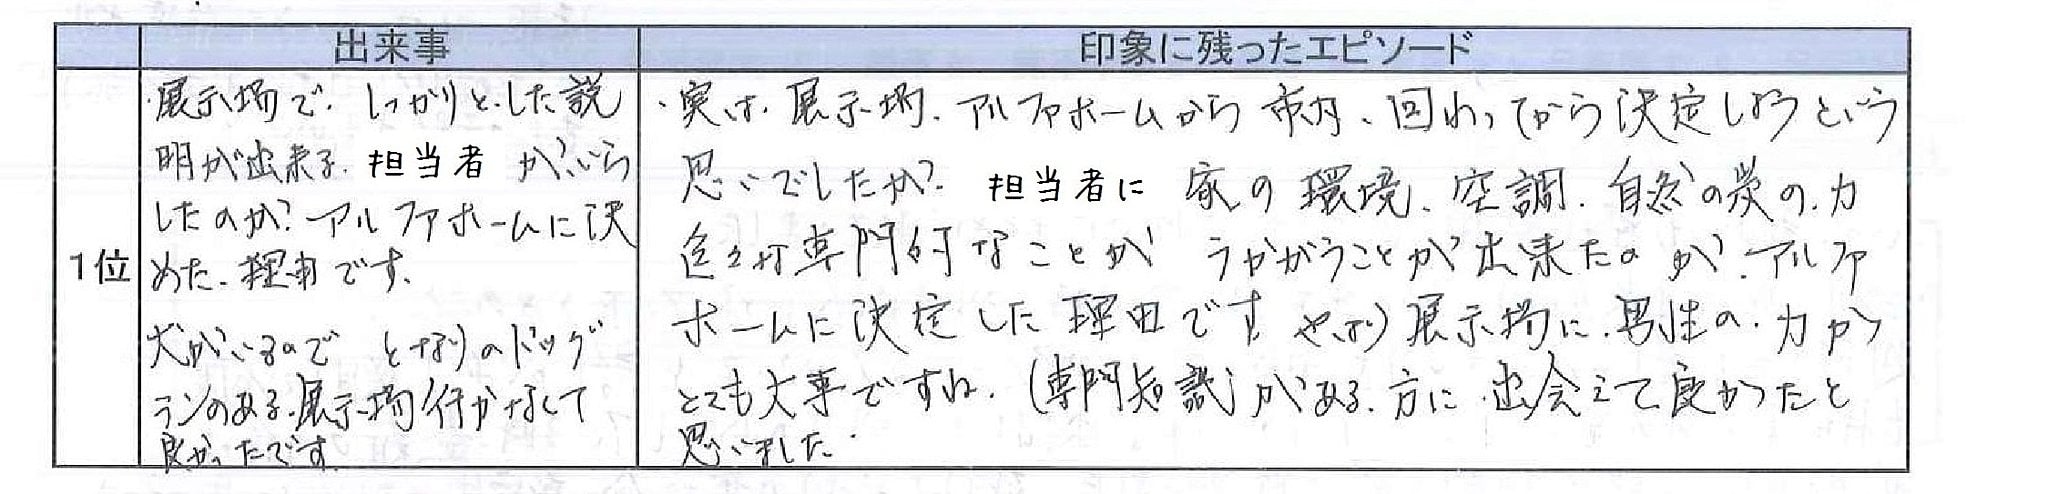 出来事
印象に残ったエピソード
1位
・展示場で、しっかりとした説
明が出来る、担当者が、いら
したのが、アルファホームに決
めた、理由です、
犬がいるので となりのドッグ
ランのある、展示場行かなくて
良かったです。
・実は、展示場、アルファホームから 市内、回わってから決定しようという
思いでしたが、担当者に 家の環境、空調、自然の炭の、力
色々な専門的なことが うかがうことが出来たのが、アルファ
ホームに決定した理由です やはり展示場に、男性の、力が
とても大事ですね、(専門知識)がある、方に、出会えて良かったと
思いました。